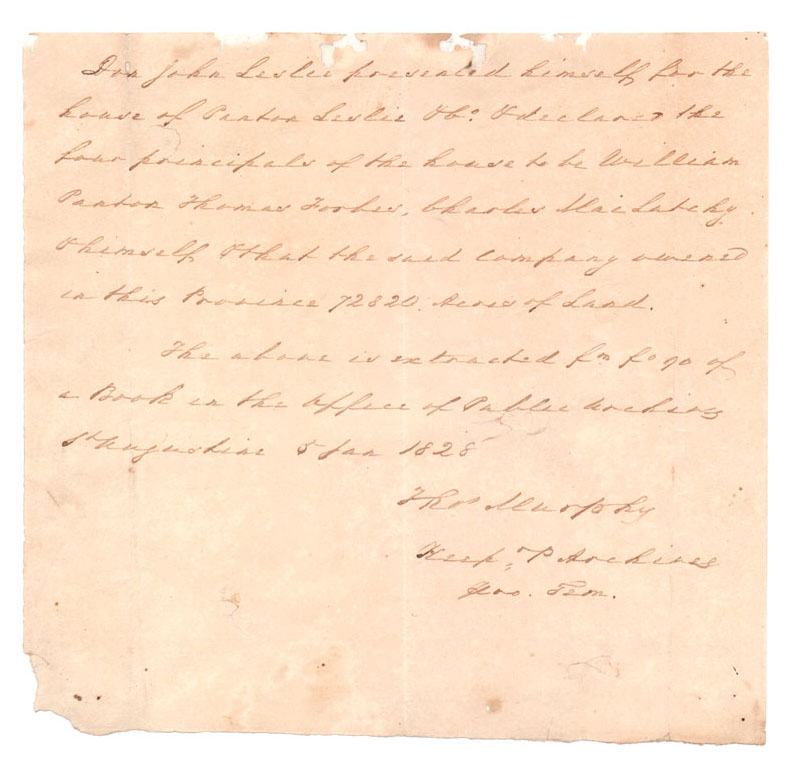 Don John Leslie presented himself for the
house of Panton Leslie & Co. & declared the
four principals of the house to be William
Panton Thomas Forbes, Charles MacLatchy
& himself & that the said Company owned
in this Province 72820. Acres of Land.
The above is extracted fm fo 90 of
a Book in the Office of Public Archives
St Augustine 5 Jan 1828
Thos Murphy
Keepr P Archives
Pro. Tem.